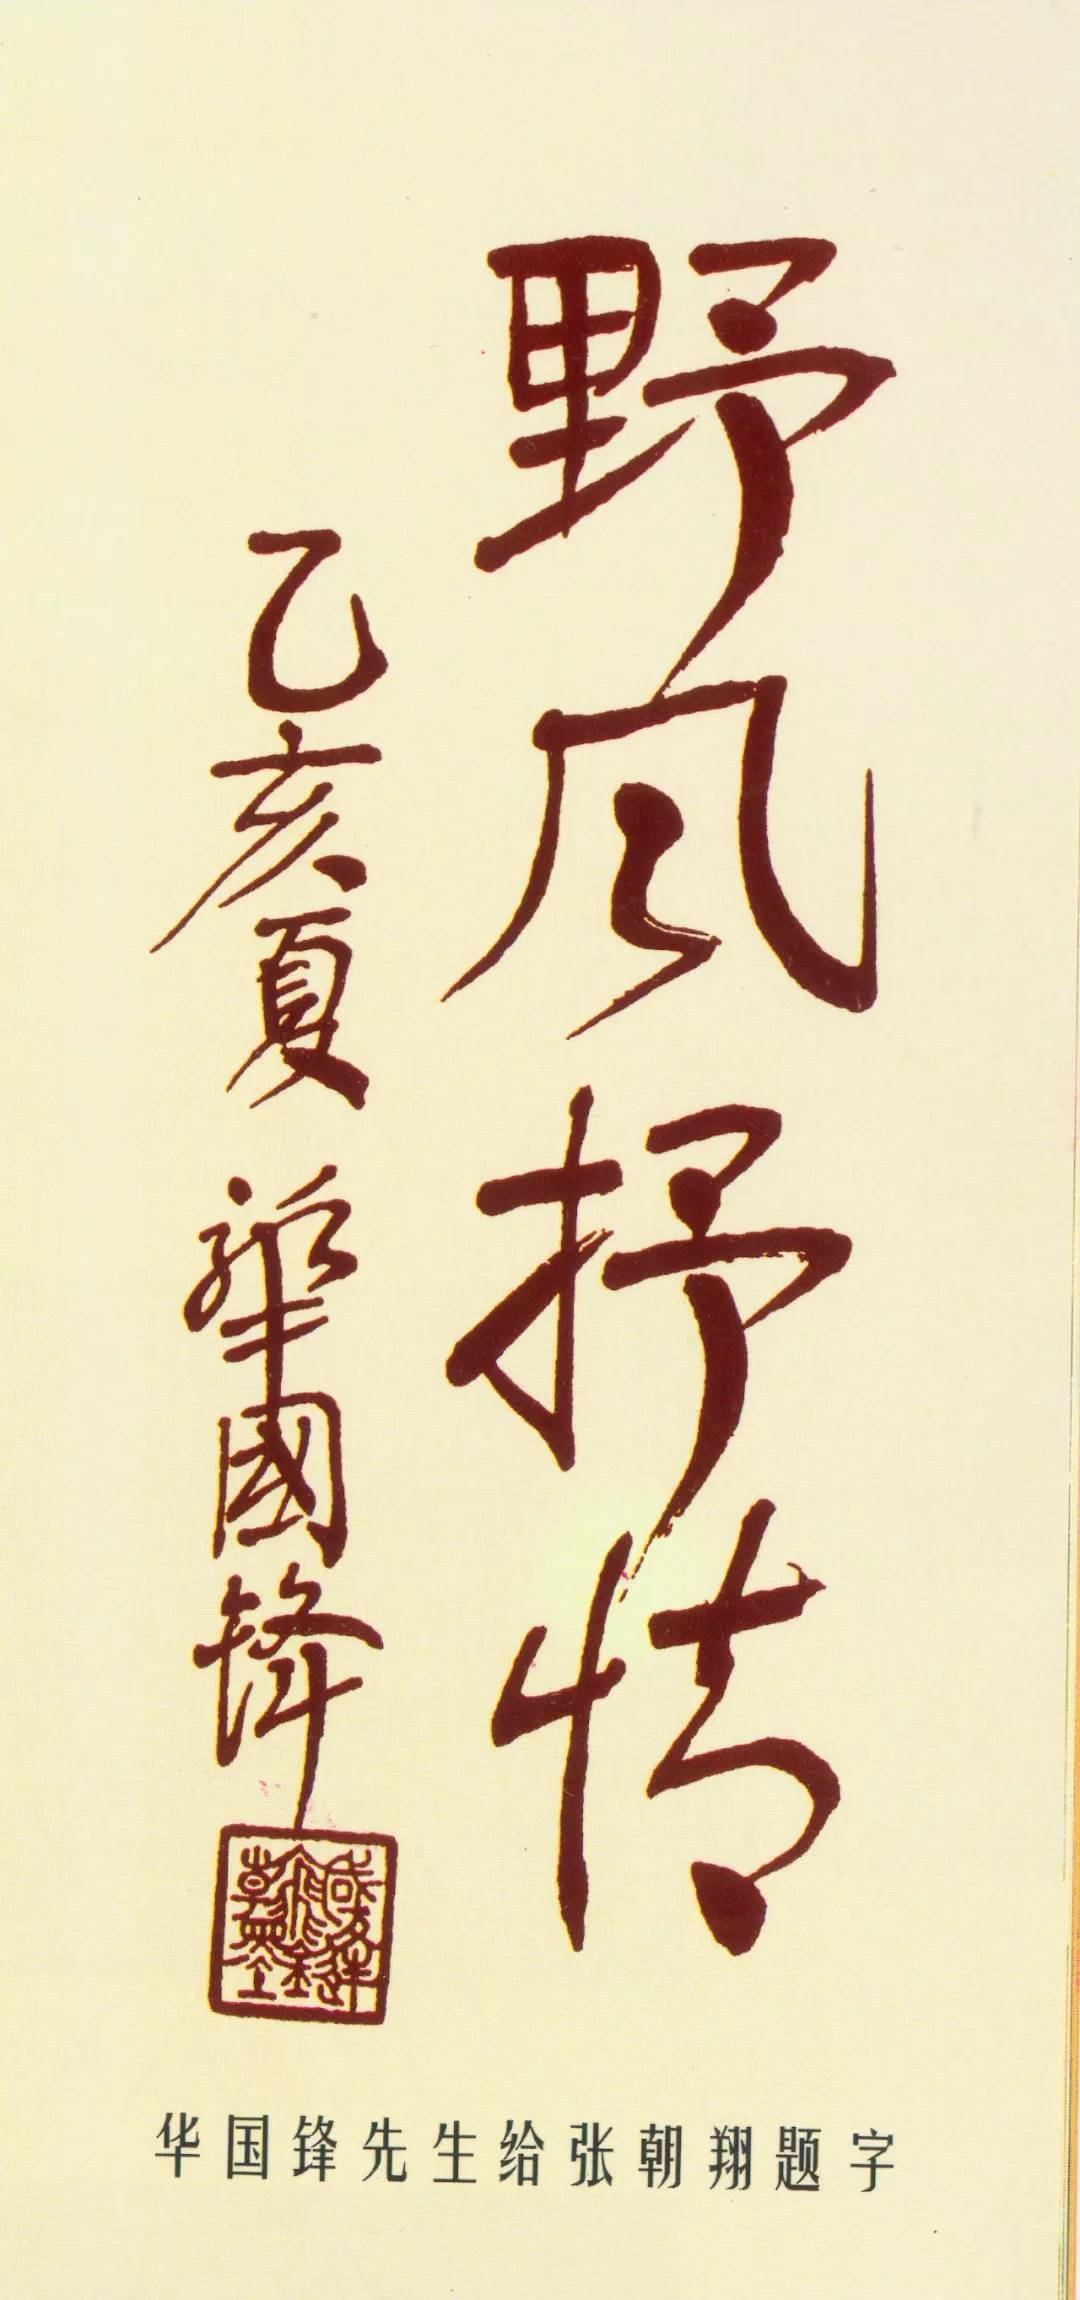 野风抒情
乙亥夏 華國锋
华国锋先生给张朝翔题字